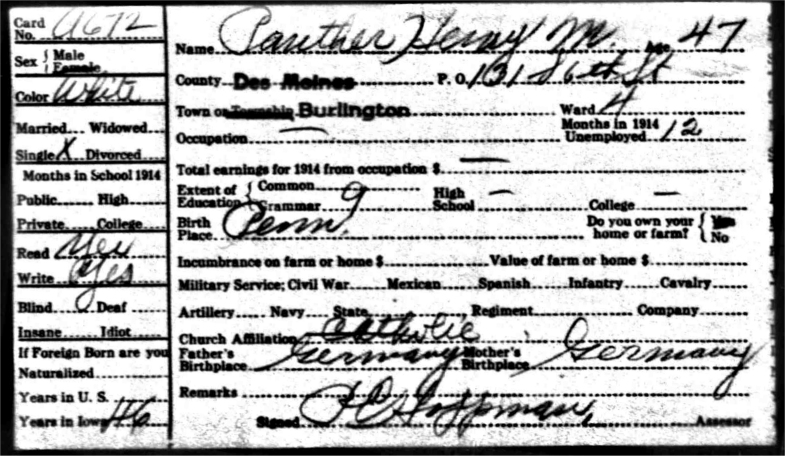 Card No. A672
Sex { Male Female
Color White
Married Widowed
Single X Divorced
Months in School 1914
Public High
Private College
Read Yes
Write Yes
Blind Deaf
Insane Idiot
If Foreign Born are you
Naturalized
Years in U. S.
Years in Iowa 46
Name Panther Henry M. Age 47
County Des Moines P. O. 131 S 6th St
Town or Township Burlington Ward 4
Occupation — Months in 1914 Unemployed 12
Total earnings for 1914 from occupation $ —
Extent of Education { Common Grammar 9 High School — College —
Birth Place Penn. Do you own your home or farm? { Yes No
Incumbrance on farm or home $ Value of farm or home $
Military Service; Civil War Mexican Spanish Infantry Cavalry
Artillery Navy State Regiment Company
Church Affiliation Catholic
Father's Birthplace Germany Mother's Birthplace Germany
Remarks
Signed Assessor